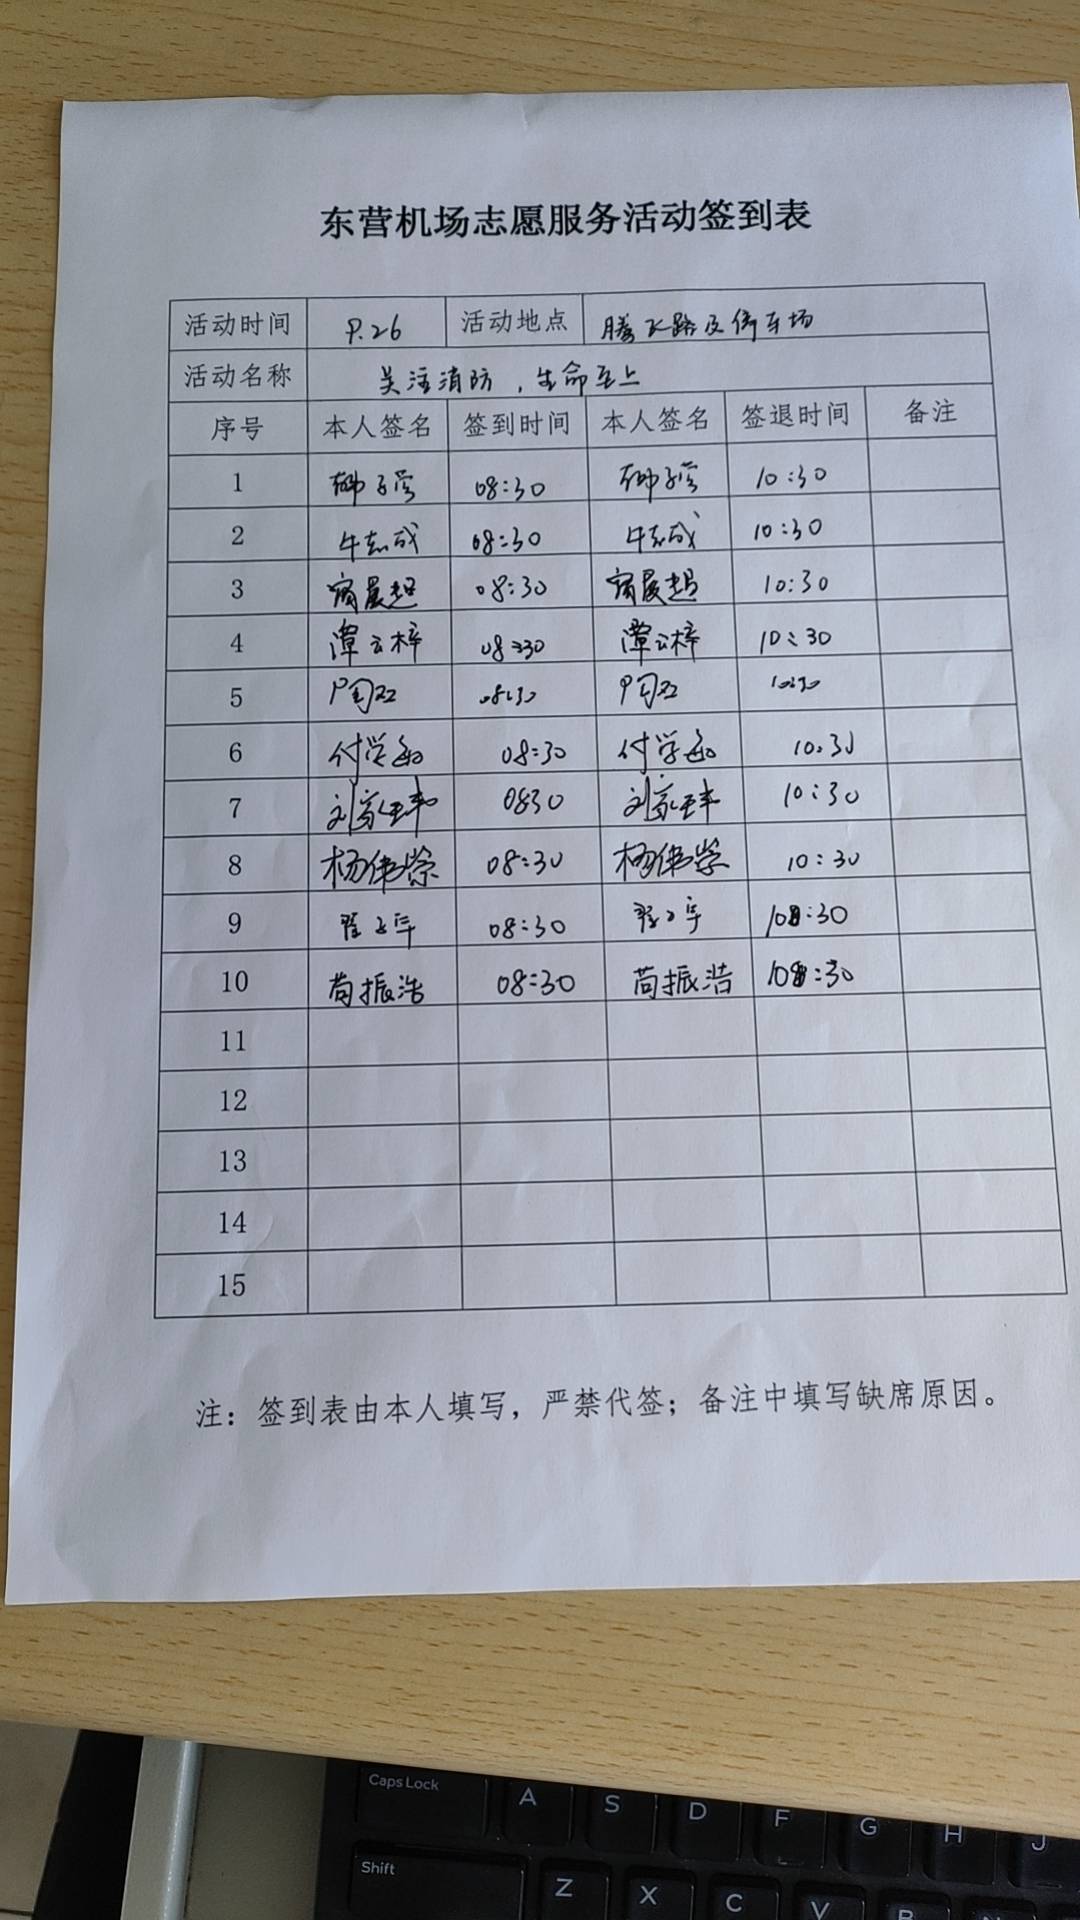 东营机场志愿服务活动签到表
活动时间 9.26 活动地点 腾飞路及停车场
活动名称 关注消防，生命至上
序号 本人签名 签到时间 本人签名 签退时间 备注
1 08:30 10:30
2 牛志成 08:30 牛志成 10:30
3 08:30 10:30
4 潭云梓 08:30 潭云梓 10:30
5 08:30 10:30
6 付学 08:30 付学 10:30
7 刘家 0830 刘家 10:30
8 杨伟崇 08:30 杨伟崇 10:30
9 08:30 10:30
10 苟振浩 08:30 苟振浩 10:30
11
12
13
14
15
注：签到表由本人填写，严禁代签；备注中填写缺席原因。
Caps Lock A S D F G H J
Shift Z X C V B